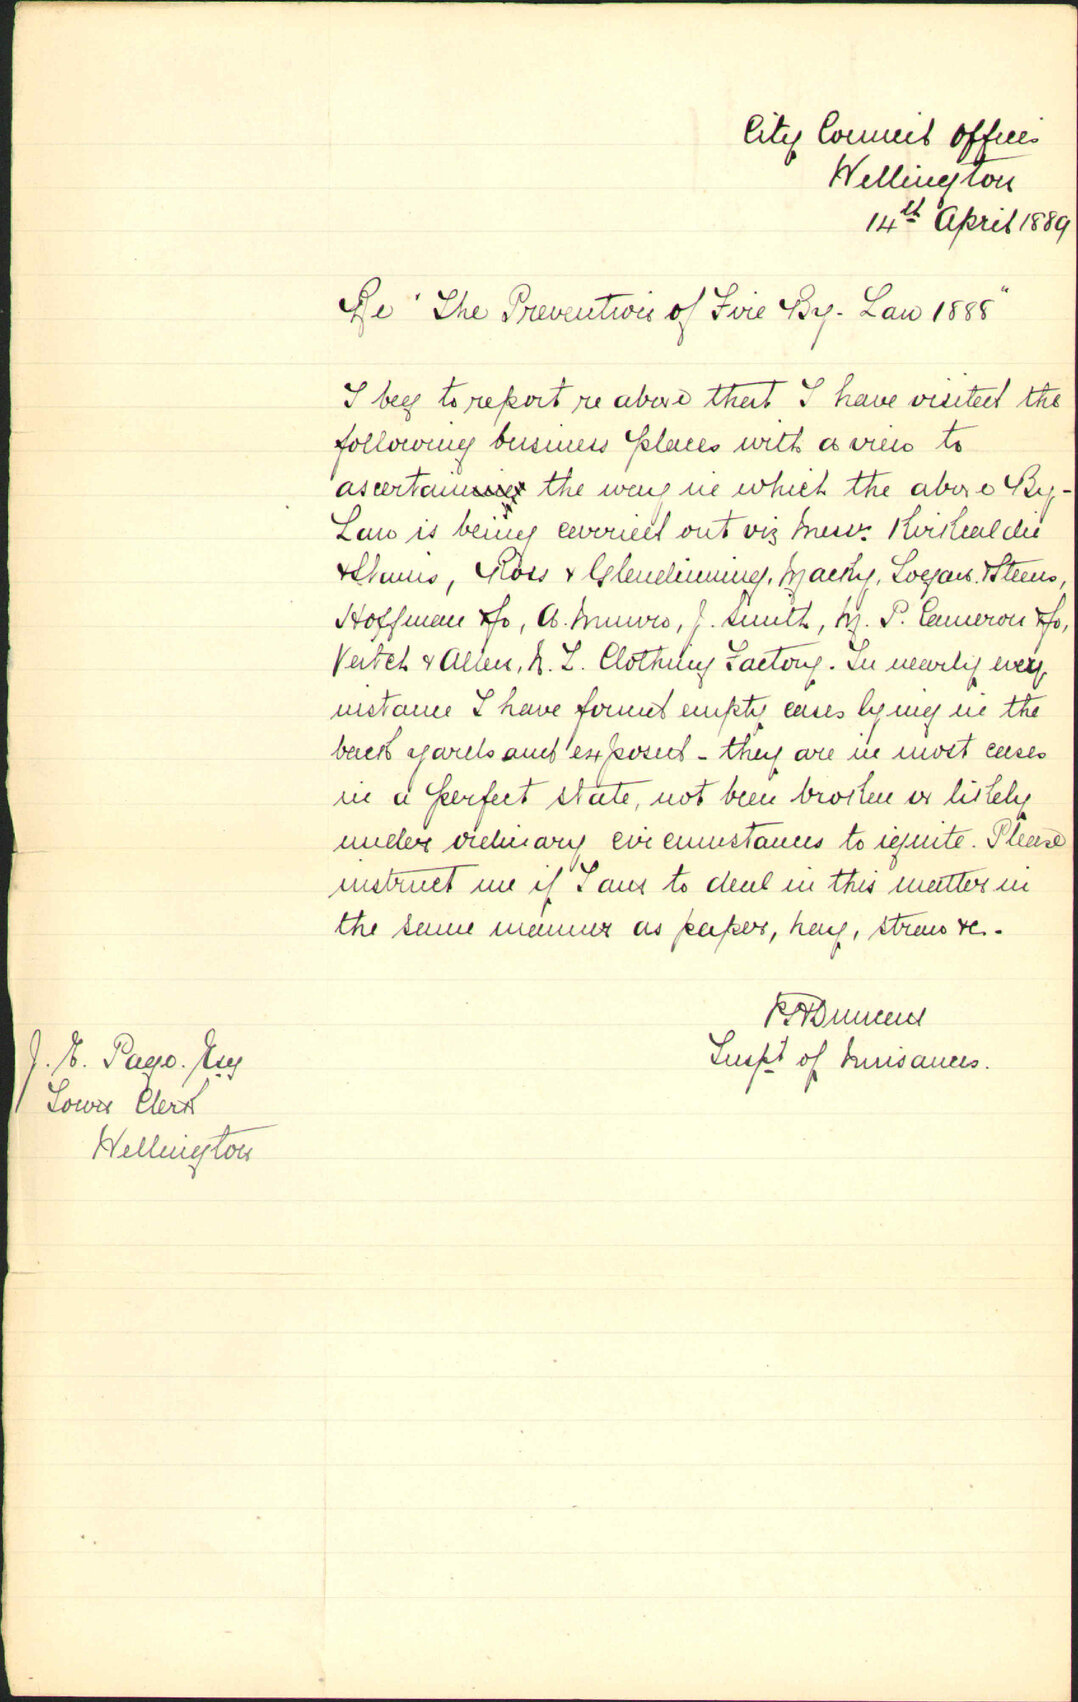 City Council Offices
Wellington
14th April 1889
Re "The Prevention of Fire By-Law 1888"
I beg to report re above that I have visited the
following business places with a view to
ascertain the way in which the above By-
Law is being carried out viz Messrs. Kirkcaldie
& Stains, Ross & Glendinning, Macky, Logan, Steens,
Hoffman & Co, A. Munro, J. Smith, M. P. Cameron & Co,
Veitch & Allen, N. Z. Clothing Factory. In nearly every
instance I have found empty cases lying in the
back yards and exposed - they are in most cases
in a perfect state, not been broken or likely
under ordinary circumstances to ignite. Please
instruct me if I am to deal in this matter in
the same manner as paper, hay, straw &c.
Duncan
Inspt of Nuisances.
J. E. Page. Esq
Town Clerk
Wellington